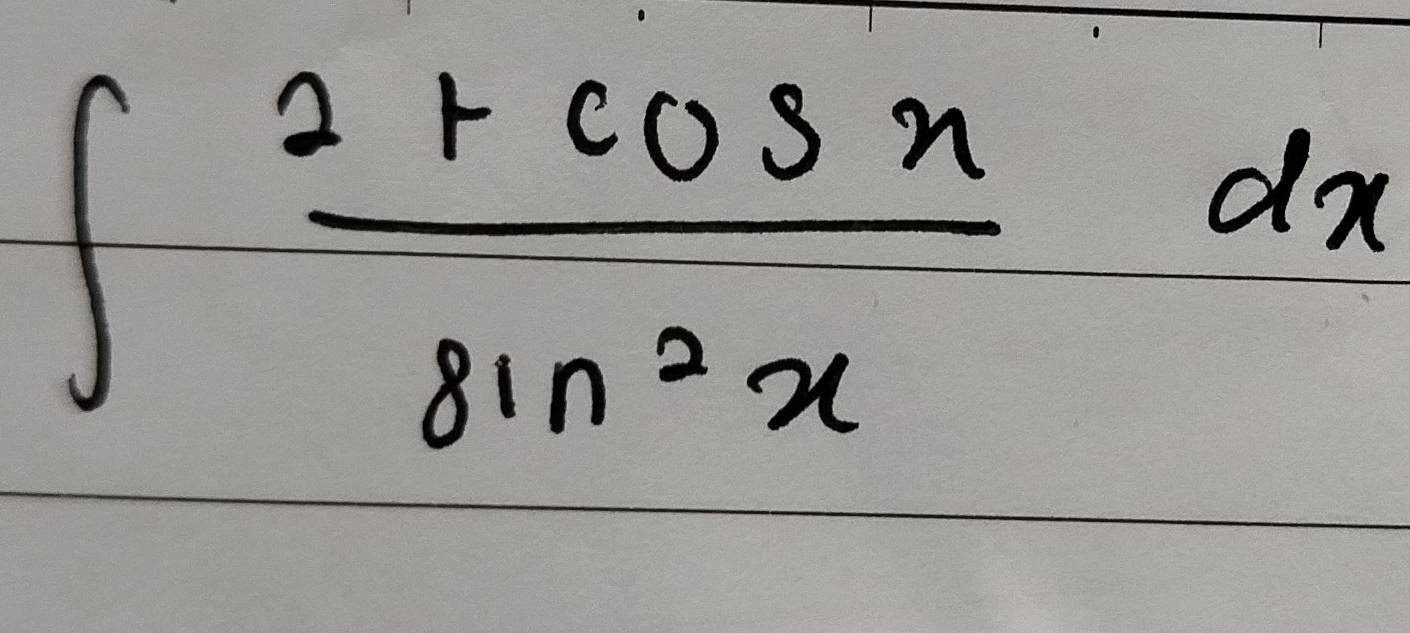 ∫ (2 + cos x) / (sin² x) dx